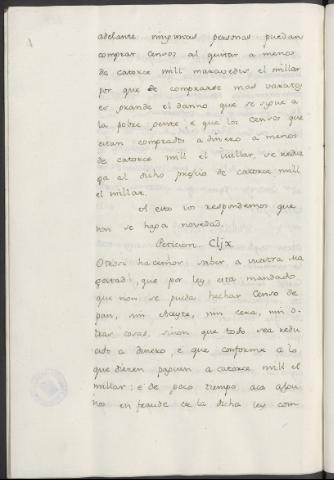 adelante ningunas personas puedan
comprar censos al quitar a menos
de catorce mill maravedis el millar
por que de comprarse mas varatos
es grande el danno que se sigue a
la pobre gente e que los censos que
estan comprados a dinero a menos
de catorce mill el millar, se redu
ga al dicho preçio de catorce mill
el millar.
A esto vos respondemos que
non se haga novedad.
Peticion. Cljx
Otrosi hacemos saber a vuestra Ma
gestad, que por ley esta mandado
que non se pueda hechar censo de
pan, nin açeyte, nin cera, nin o-
tras cosas, sinon que todo sea redu
cido a dinero, e que conforme a lo
que dieren paguen a catorce mill el
millar: e de poco tiempo aca algu
nos en fraude de la dicha ley com